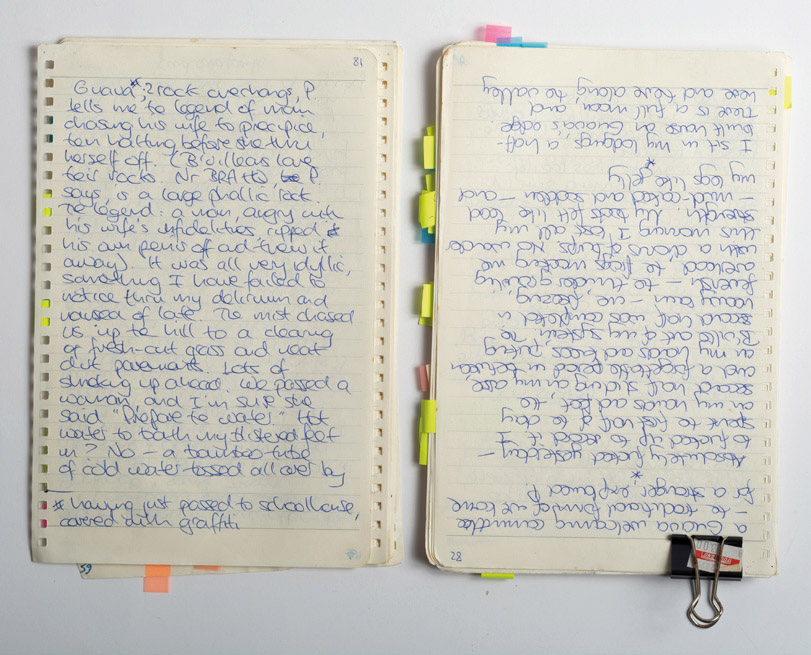 81
Guava*, 2 rock overhangs, P
tells me te legend of man
chasing his wife to precipice,
ten halting before she threw
herself off. (Bivilleans love
teir rocks. Nr BRA tto, P.
says is a large phallic rock.
Te legend: a man, angry with
his wife's infidelities ripped
his own penis off and threw it
away) It was all very idyllic,
something I have failed to
notice thru my delirium and
nausea of late. Te mist chased
us up te hill to a clearing
of fresh-cut grass and neat
dirt pavements. Lots of
smoking up ahead. We passed a
woman and I'm sure she
said "prepare te water." Hot
water to bath my blistered feet
in? No – a bamboo-tube
of cold water tossed all over by
* having just passed te schoolhouse,
covered with graffiti
82
a Guava welcoming committee
– te traditional form of welcome
for a stranger, explained P.
*
Absolutely fucked yesterday –
te fucked up te it. I
spent te first half of te day
on my hands and feet, te
second half sliding on my arse
and a forgettable period in between
on my hands and knees, puking
out of my system. Te
second half was completed in
heavy rain – me, freezing,
feverish – te thunder growling
overhead, te frogs mocking me
with a chorus of burps. No wonder
this morning I lost all my
strength. My boots felt like lead
– mud-caked and sodden – and
my legs like jelly
*
I sit in my lodgings, a half-
built house on Guava's edge.
There is a full moon, and
here and there along te valley
59